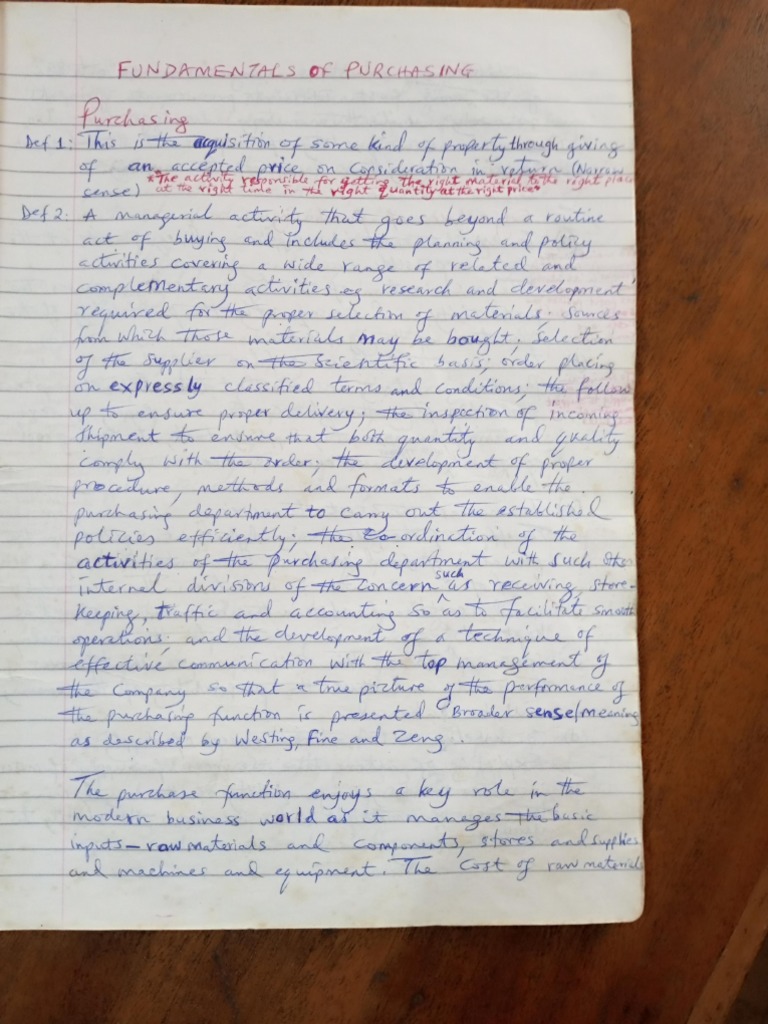 FUNDAMENTALS of PURCHASING
Purchasing
Def 1: This is the acquisition of some kind of property through giving
of an accepted price on consideration in return (Narrow
*The activity responsible for getting the right material to the right place
sense) at the right time in the right quantity at the right price*
Def 2. A managerial activity that goes beyond a routine
act of buying and includes the planning and policy
activities covering a wide range of related and
complementary activities eg research and development
required for the proper selection of materials; sources
from which those materials may be bought; selection
of the supplier on the scientific basis; order placing
on expressly classified terms and conditions; the follow
up to ensure proper delivery; the inspection of incoming
shipment to ensure that both quantity and quality
comply with the order; the development of proper
procedure, methods and formats to enable the
purchasing department to carry out the established
policies efficiently; the co-ordination of the
activities of the purchasing department with such
internal divisions of the concern such as receiving, store-
keeping, traffic and accounting so as to facilitate smooth
operations; and the development of a technique of
effective communication with the top management of
the Company so that a true picture of the performance of
the purchasing function is presented Broader sense/meaning
as described by Westing, Fine and Zeng.
The purchase function enjoys a key role in the
modern business world as it manages the basic
inputs - raw materials and components, stores and supplies
and machines and equipment. The cost of raw material